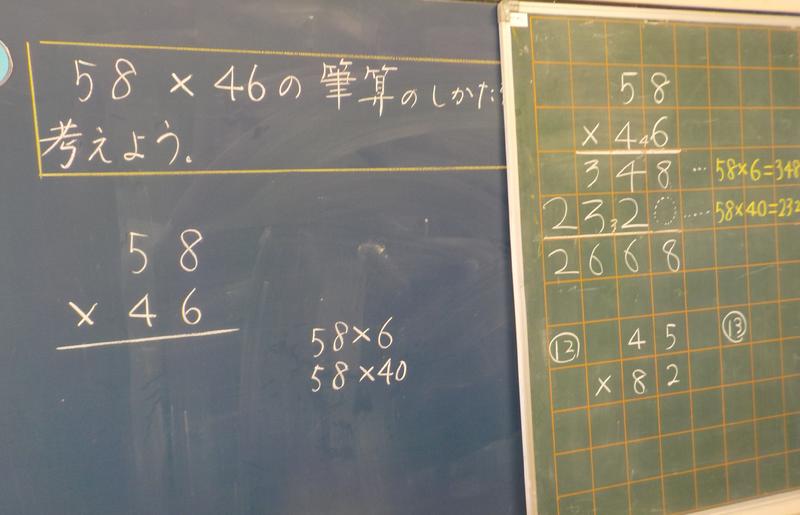 58 × 46の筆算のしかた
考えよう。
58
× 46
58×6
58×40
58
×446
348 … 58×6=348
2332 …… 58×40=232
2668
⑫ 45
× 82
⑬